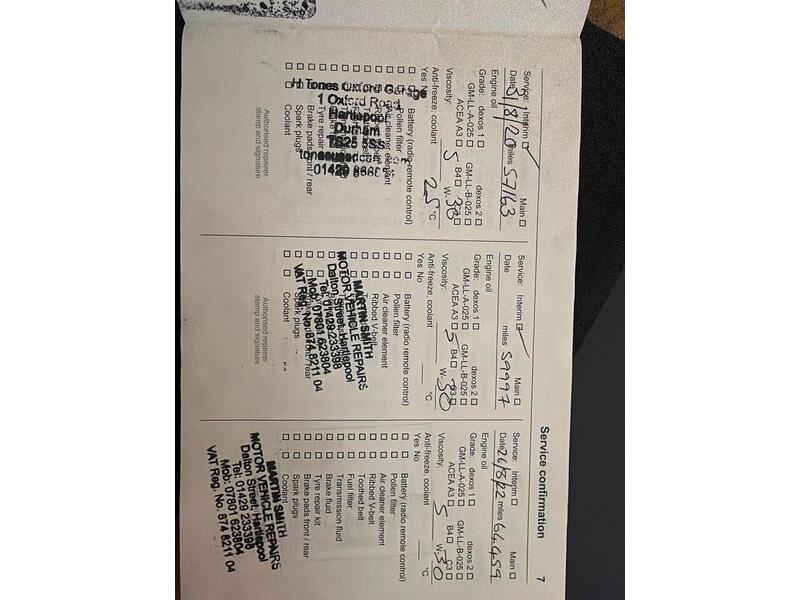 Service confirmation 7
Service: Interim ☑ Main ☐
Date 3/8/20 miles 57163
Engine oil
Grade: dexos 1 ☐ dexos 2 ☐
GM-LL-A-025 ☐ GM-LL-B-025 ☐
ACEA A3 ☐ B4 ☐ C3 ☐
Viscosity: 5 W- 30
Anti-freeze, coolant 25 °C
Yes No
Battery (radio remote control)
Pollen filter
Air cleaner element
Tyre repair
Brake pads front / rear
Spark plugs
Coolant
H Tones Oxford Garage
1 Oxford Road
Hartlepool
Durham
TS25 5SS
01429
Authorised repairer
stamp and signature
Service: Interim ☑ Main ☐
Date miles 59997
Engine oil
Grade: dexos 1 ☐ dexos 2 ☐
GM-LL-A-025 ☐ GM-LL-B-025 ☐
ACEA A3 ☐ B4 ☐ C3 ☐
Viscosity: 5 W- 30
Anti-freeze, coolant °C
Yes No
Battery (radio remote control)
Pollen filter
Air cleaner element
Ribbed V-belt
Spark plugs
Coolant
MARTIN SMITH
MOTOR VEHICLE REPAIRS
Dalton Street, Hartlepool
Tel: 01429 233398
Mob: 07801 623804
VAT Reg. No. 874 8211 04
Authorised repairer
stamp and signature
Service: Interim ☐ Main ☐
Date 26/3/22 miles 64459
Engine oil
Grade: dexos 1 ☐ dexos 2 ☐
GM-LL-A-025 ☐ GM-LL-B-025 ☐
ACEA A3 ☐ B4 ☐ C3 ☐
Viscosity: 5 W- 30
Anti-freeze, coolant °C
Yes No
Battery (radio remote control)
Pollen filter
Air cleaner element
Ribbed V-belt
Toothed belt
Fuel filter
Transmission fluid
Brake fluid
Tyre repair kit
Brake pads front / rear
Spark plugs
Coolant
MARTIN SMITH
MOTOR VEHICLE REPAIRS
Dalton Street, Hartlepool
Tel: 01429 233398
Mob: 07801 623804
VAT Reg. No. 874 8211 04